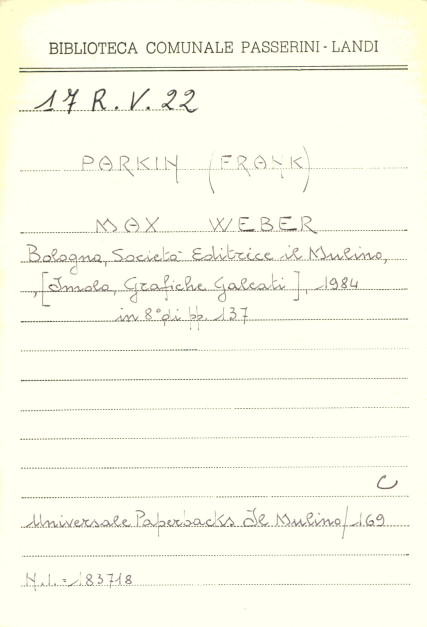 BIBLIOTECA COMUNALE PASSERINI-LANDI
17 R. V. 22
PARKIN (FRANK)
MAX WEBER
Bologna, Società Editrice il Mulino,
, [Imola, Grafiche Galeati], 1984
in 8° di pp. 137
C
Universale Paperbacks Il Mulino/169
N.I. = 183718